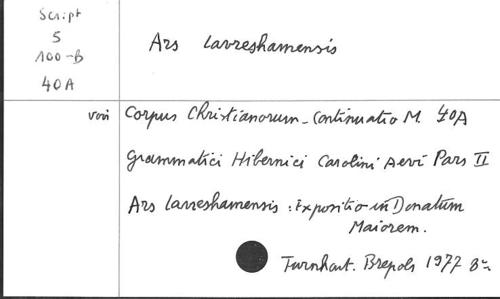 Script
5
100-B
40A
Ars Lavreshamensis
voir Corpus Christianorum-Continuatio M. 40A
Grammatici Hibernici Carolini Aevi Pars II
Ars Lavreshamensis : Expositio in Donatum
Maiorem.
Turnhout. Brepols 1977 8°.